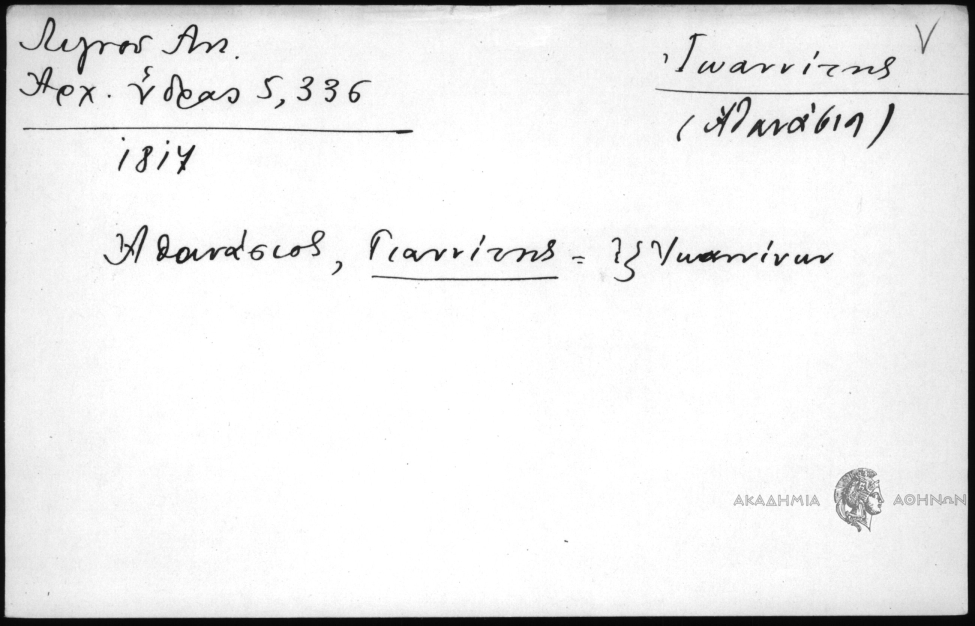 Λιγνού Αντ.
Αρχ. ύδρας 5, 336
1817
Ἰωαννίτης
(Ἀθανάσιη)
Ἀθανάσιος, Γιαννίτης = ἐξ Ἰωαννίνων
ΑΚΑΔΗΜΙΑ ΑΘΗΝΩΝ